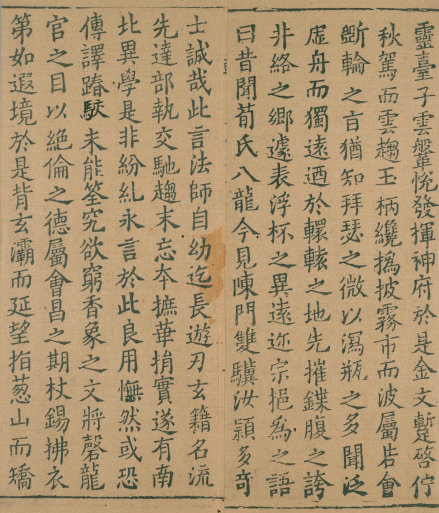 靈臺子雲鞶帨發揮神府於是金文蹔啓佇
秋駕而雲趨玉柄纔撝披霧市而波屬若會
斲輪之旨猶知拜瑟之微以瀉瓶之多聞泛
虛舟而獨遠迺於轘轅之地先摧鍱腹之誇
井絡之鄉遽表浮杯之異遠迩宗挹為之語
曰昔聞荀氏八龍今見陳門雙驥汝潁多奇
士誠哉此言法師自幼迄長遊刃玄籍名流
先達部執交馳趨末忘本摭華捐實遂有南
北異學是非紛糺永言於此良用憮然或恐
傳譯踳駮未能筌究欲窮香象之文將罄龍
宮之目以絕倫之德屬會昌之期杖錫拂衣
第如遐境於是背玄灞而延望指葱山而矯